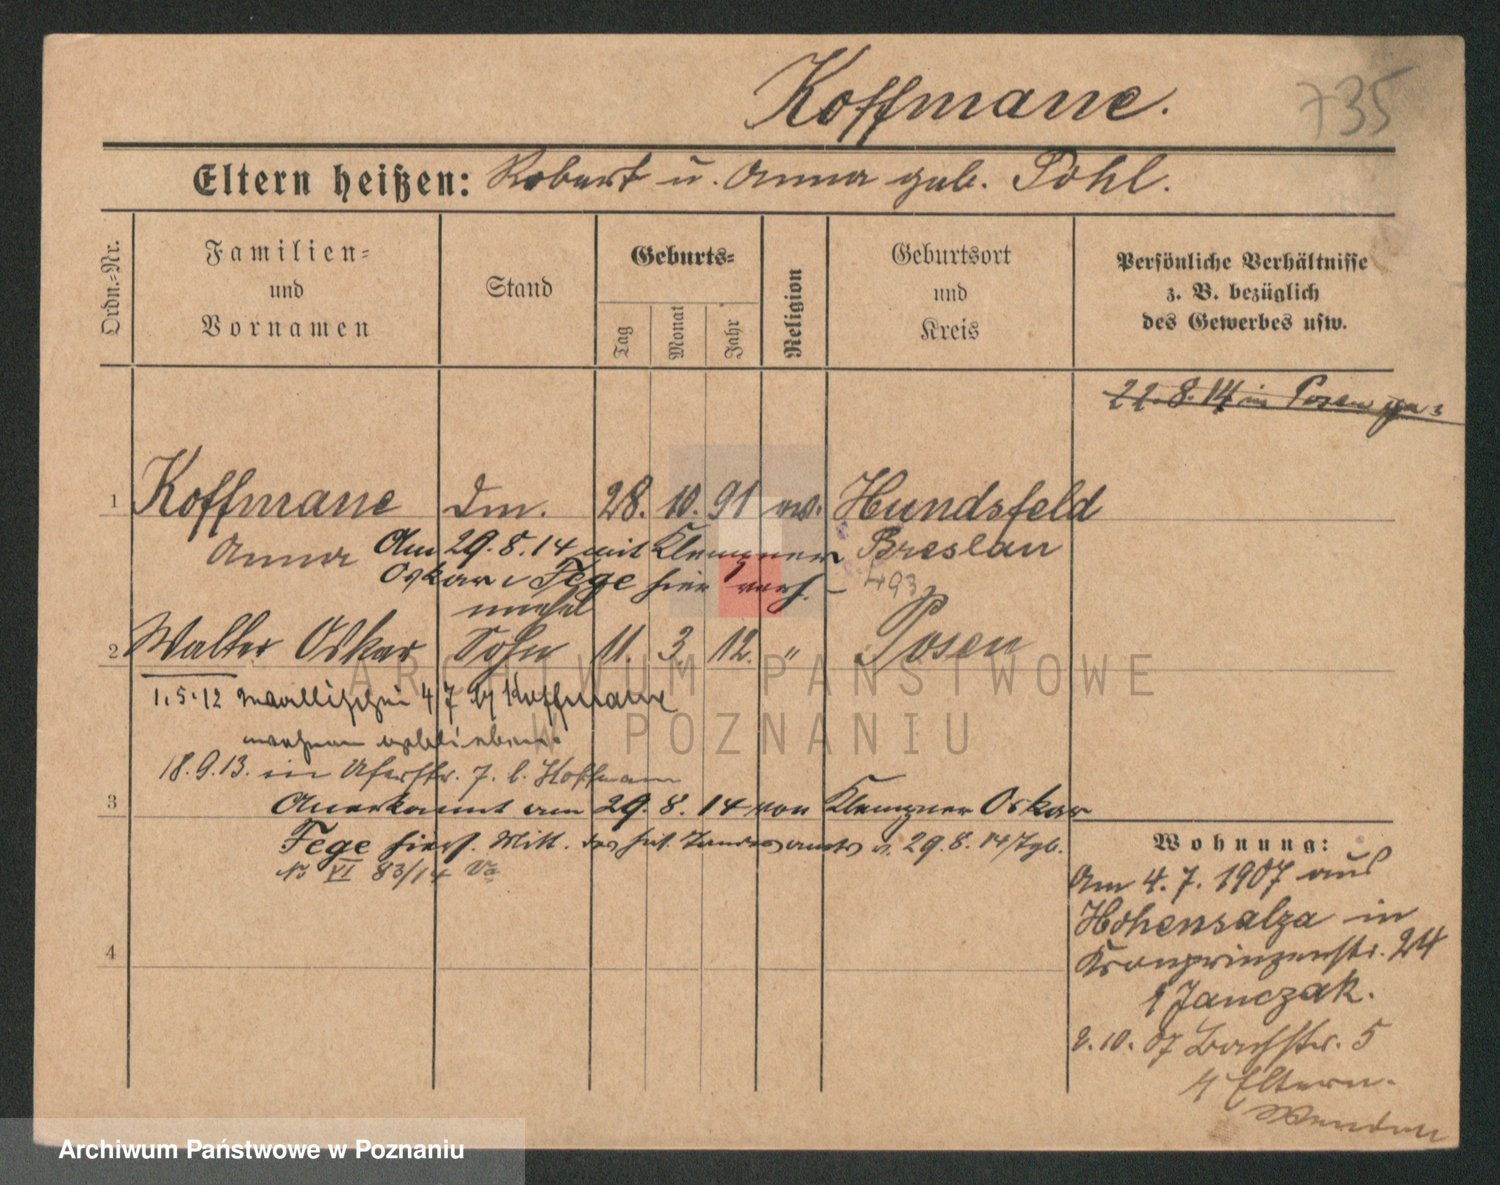 Koffmane.
735
Eltern heißen: Robert u. Anna geb. Pohl.
Ordn.-Nr.
Familien-
und
Vornamen
Stand
Geburts-
Tag
Monat
Jahr
Religion
Geburtsort
und
Kreis
Persönliche Verhältnisse
z. B. bezüglich
des Gewerbes usw.
22.8.14 in Posen
1 Koffmane 28. 10. 91 Hundsfeld
Anna Am 29.8.14 mit Klempner Breslau
Oskar Fege hier verh. - 493
unehel
2 Walter Oskar Sohn 11. 3. 12. " Posen
1.5.12 4/7 Koffmane
18.9.13. in Uferstr. 7. b. Koffmane
3 Anerkannt am 29.8.14 von Klempner Oskar
Fege hier. Mitt. des Standesamts v. 29.8.14
VI 83/14
4
Wohnung:
Am 4.7.1907 aus
Hohensalza in
Kronprinzenstr. 24
Janczak.
2.10.07 Bachstr. 5
Eltern.
Wenden
ARCHIWUM PAŃSTWOWE
W POZNANIU
Archiwum Państwowe w Poznaniu